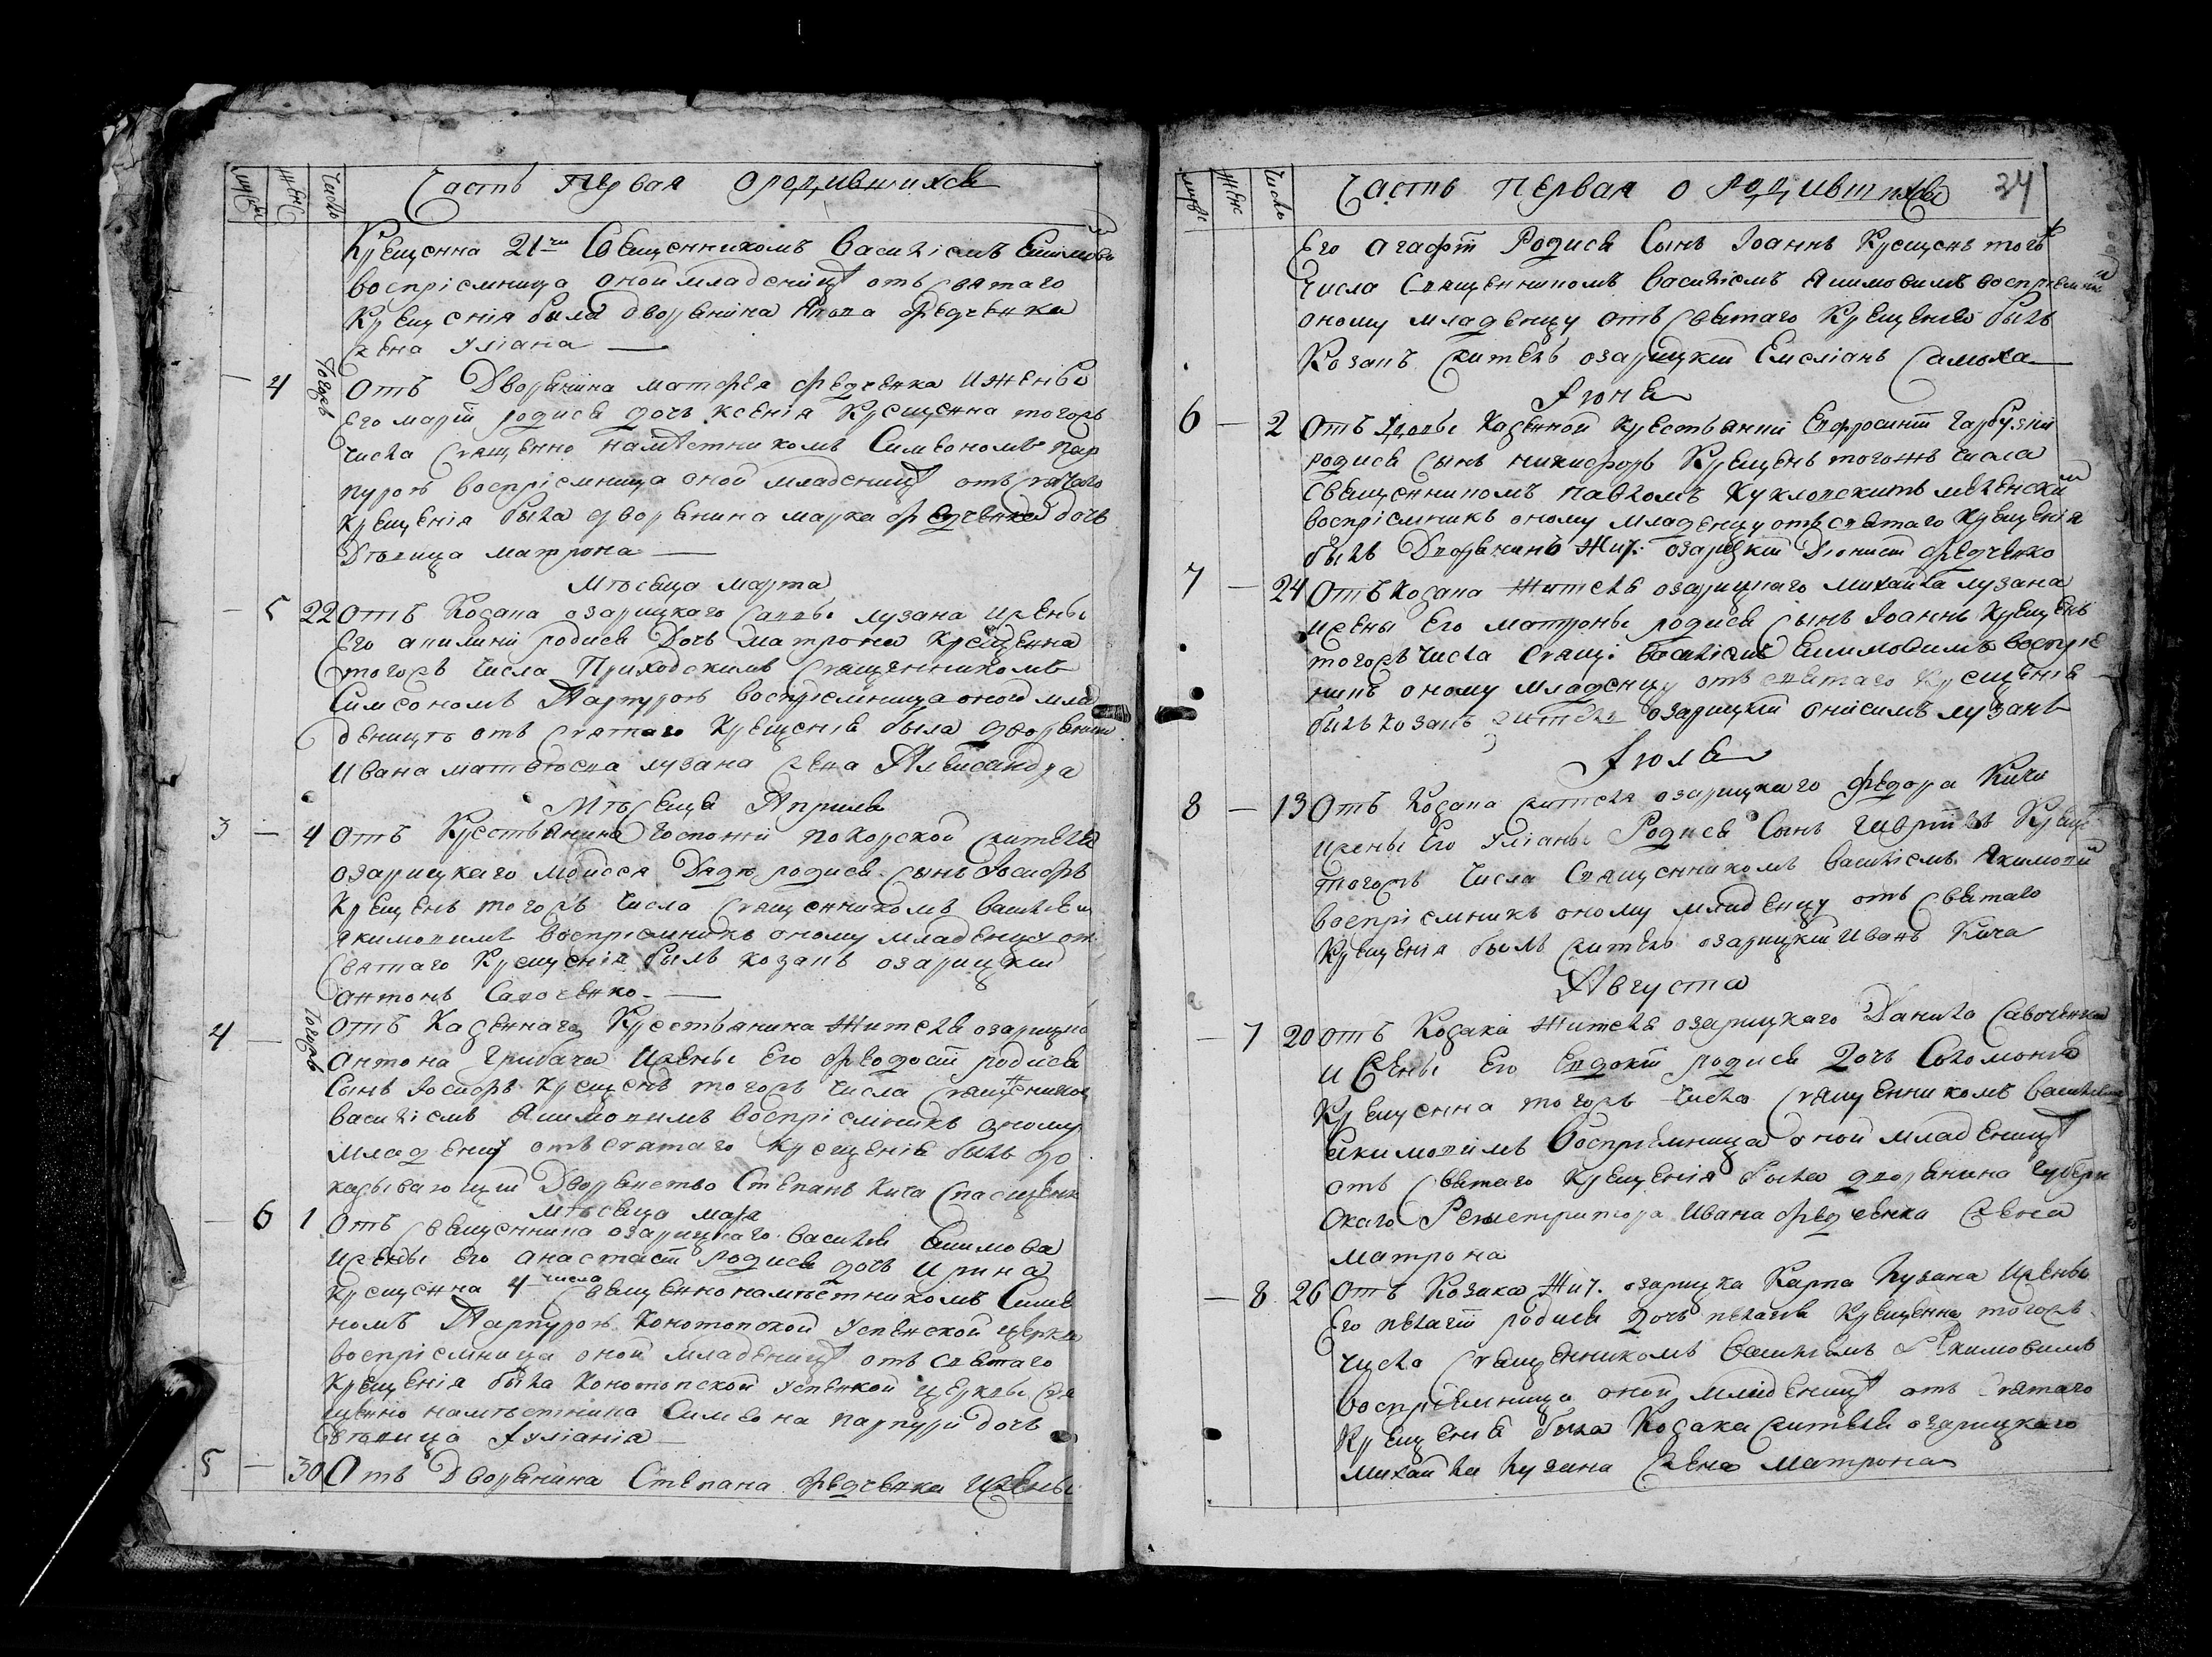 мужс женс Число Часть Первая о родившихся
Крещенна 21го Священникомъ Василіемъ
воспріемница оной младеницѣ отъ святаго
Крещенія была дворянина Федченка
жена Уліана
4 Тогожъ Отъ Дворянина Матфея Федченка и женьі
его маріи родися дочь Ксенія Крещенна тогожъ
числа Священно намѣстникомъ Симеономъ Пар
пурою воспріемница оной младеницѣ отъ святаго
крещенія была дворянина марка Федченка дочь
Дѣвица матрона
Мѣсяца марта
5 22 Отъ Козака озарицкаго Саввы лузана и жены
Его акилини родися Дочь матрона Крещенна
тогожъ числа Приходскимъ Священникомъ
Симеономъ Парпурою воспріемница оной мла
деницѣ отъ святаго Крещенія была дворянин
Ивана матвѣева лузана жена Александра
Мѣсяца Априля
3 4 Отъ Крестьянина госпожи покорской жителя
озарицкаго Моисея родися сынъ Іосифъ
Крещенъ тогожъ числа Священникомъ Василіем
Якимовимъ воспріемникъ оному младенцу от
Святаго Крещенія былъ козакъ озарицкій
антонъ Савоченко
4 Тогожъ Отъ Казеннаго Крестьянина Жителя озарицка
Антона Грибача и жены Его Феодосіи родися
Сынъ Іосифъ Крещенъ тогожъ числа Священником
василіемъ Якимовимъ воспріемникъ оному
младенцу отъ святаго Крещенія былъ до
казывающій Дворянство Степанъ Кича
Мѣсяца маія
6 1 Отъ Священника озарицкаго василія Якимова
и жены Его Анастасіи родися дочь Ирина
Крещенна 4 числа Священнонамѣстникомъ Симе
ономъ Парпурою Конотопской Успенской церкви
воспріемница оной младеницѣ отъ святаго
Крещенія была Конотопской Успенкой церквы свя
щенно намѣстника Симеона парпури дочь
дѣвица Іуліанія
5 30 Отъ Дворянина Степана Федченка и жены
мужс женс Число Часть первая о родившихся 34
Его агафіи Родися Сынъ Іоаннъ Крещенъ тогожъ
числа Священникомъ василіемъ Якимовимъ воспріемник
оному младенцу отъ святаго Крещенія былъ
Козакъ житель озарицкій Емеліанъ Самоха
Іюня
6 2 Отъ Вдовы Казенной Крестьянки Евфросиніи
родися сынъ никифоръ Крещенъ тогожъ числа
Священникомъ павломъ
воспріемникъ оному младенцу отъ святаго Крещенія
былъ Дворянинъ жит: озарицкій Діонисій Федченко
7 24 Отъ Козака Жителя озарицкаго михайла лузана
и жены Его матроны родися сынъ Іоаннъ Крещенъ
тогожъ числа свящ: Василіемъ Якимовимъ воспріем
никъ оному младенцу отъ святаго Крещенія
былъ козакъ житель озарицкій Онисимъ лузанъ
Іюля
8 13 Отъ Козака жителя озарицкаго Федора Кичи
и жены Его Уліаны Родися Сынъ Гавріилъ Крещ
тогожъ числа Священникомъ василіемъ Якимовим
воспріемникъ оному младенцу отъ святаго
крещенія былъ житель озарицкій Иванъ Кича
Августа
7 20 Отъ Козака Жителя озарицкаго Данила Савоченка
и жены Его Евдокіи родися дочь Соломонія
Крещенна тогожъ числа Священникомъ василіем
Якимовимъ воспріемница оной младеницѣ
отъ святаго Крещенія была дворянина Губерн
скаго Регистратора Ивана Федченка жена
матрона
8 26 Отъ Козака Жит. озарицка Карпа лузана и жены
Его пелагіи родися дочь пелагія Крещенна тогожъ
числа Священникомъ Василіемъ Якимовимъ
воспріемница оной младеницѣ отъ Святаго
Крещенія была Козака жителя озарицкаго
михайла лузана жена матрона